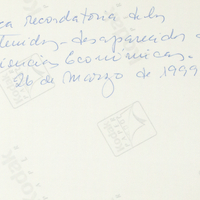 ca recordatoria de los
tenidos-desaparecidos d
iencias Económicas.
26 de Marzo de 1999
Kodak